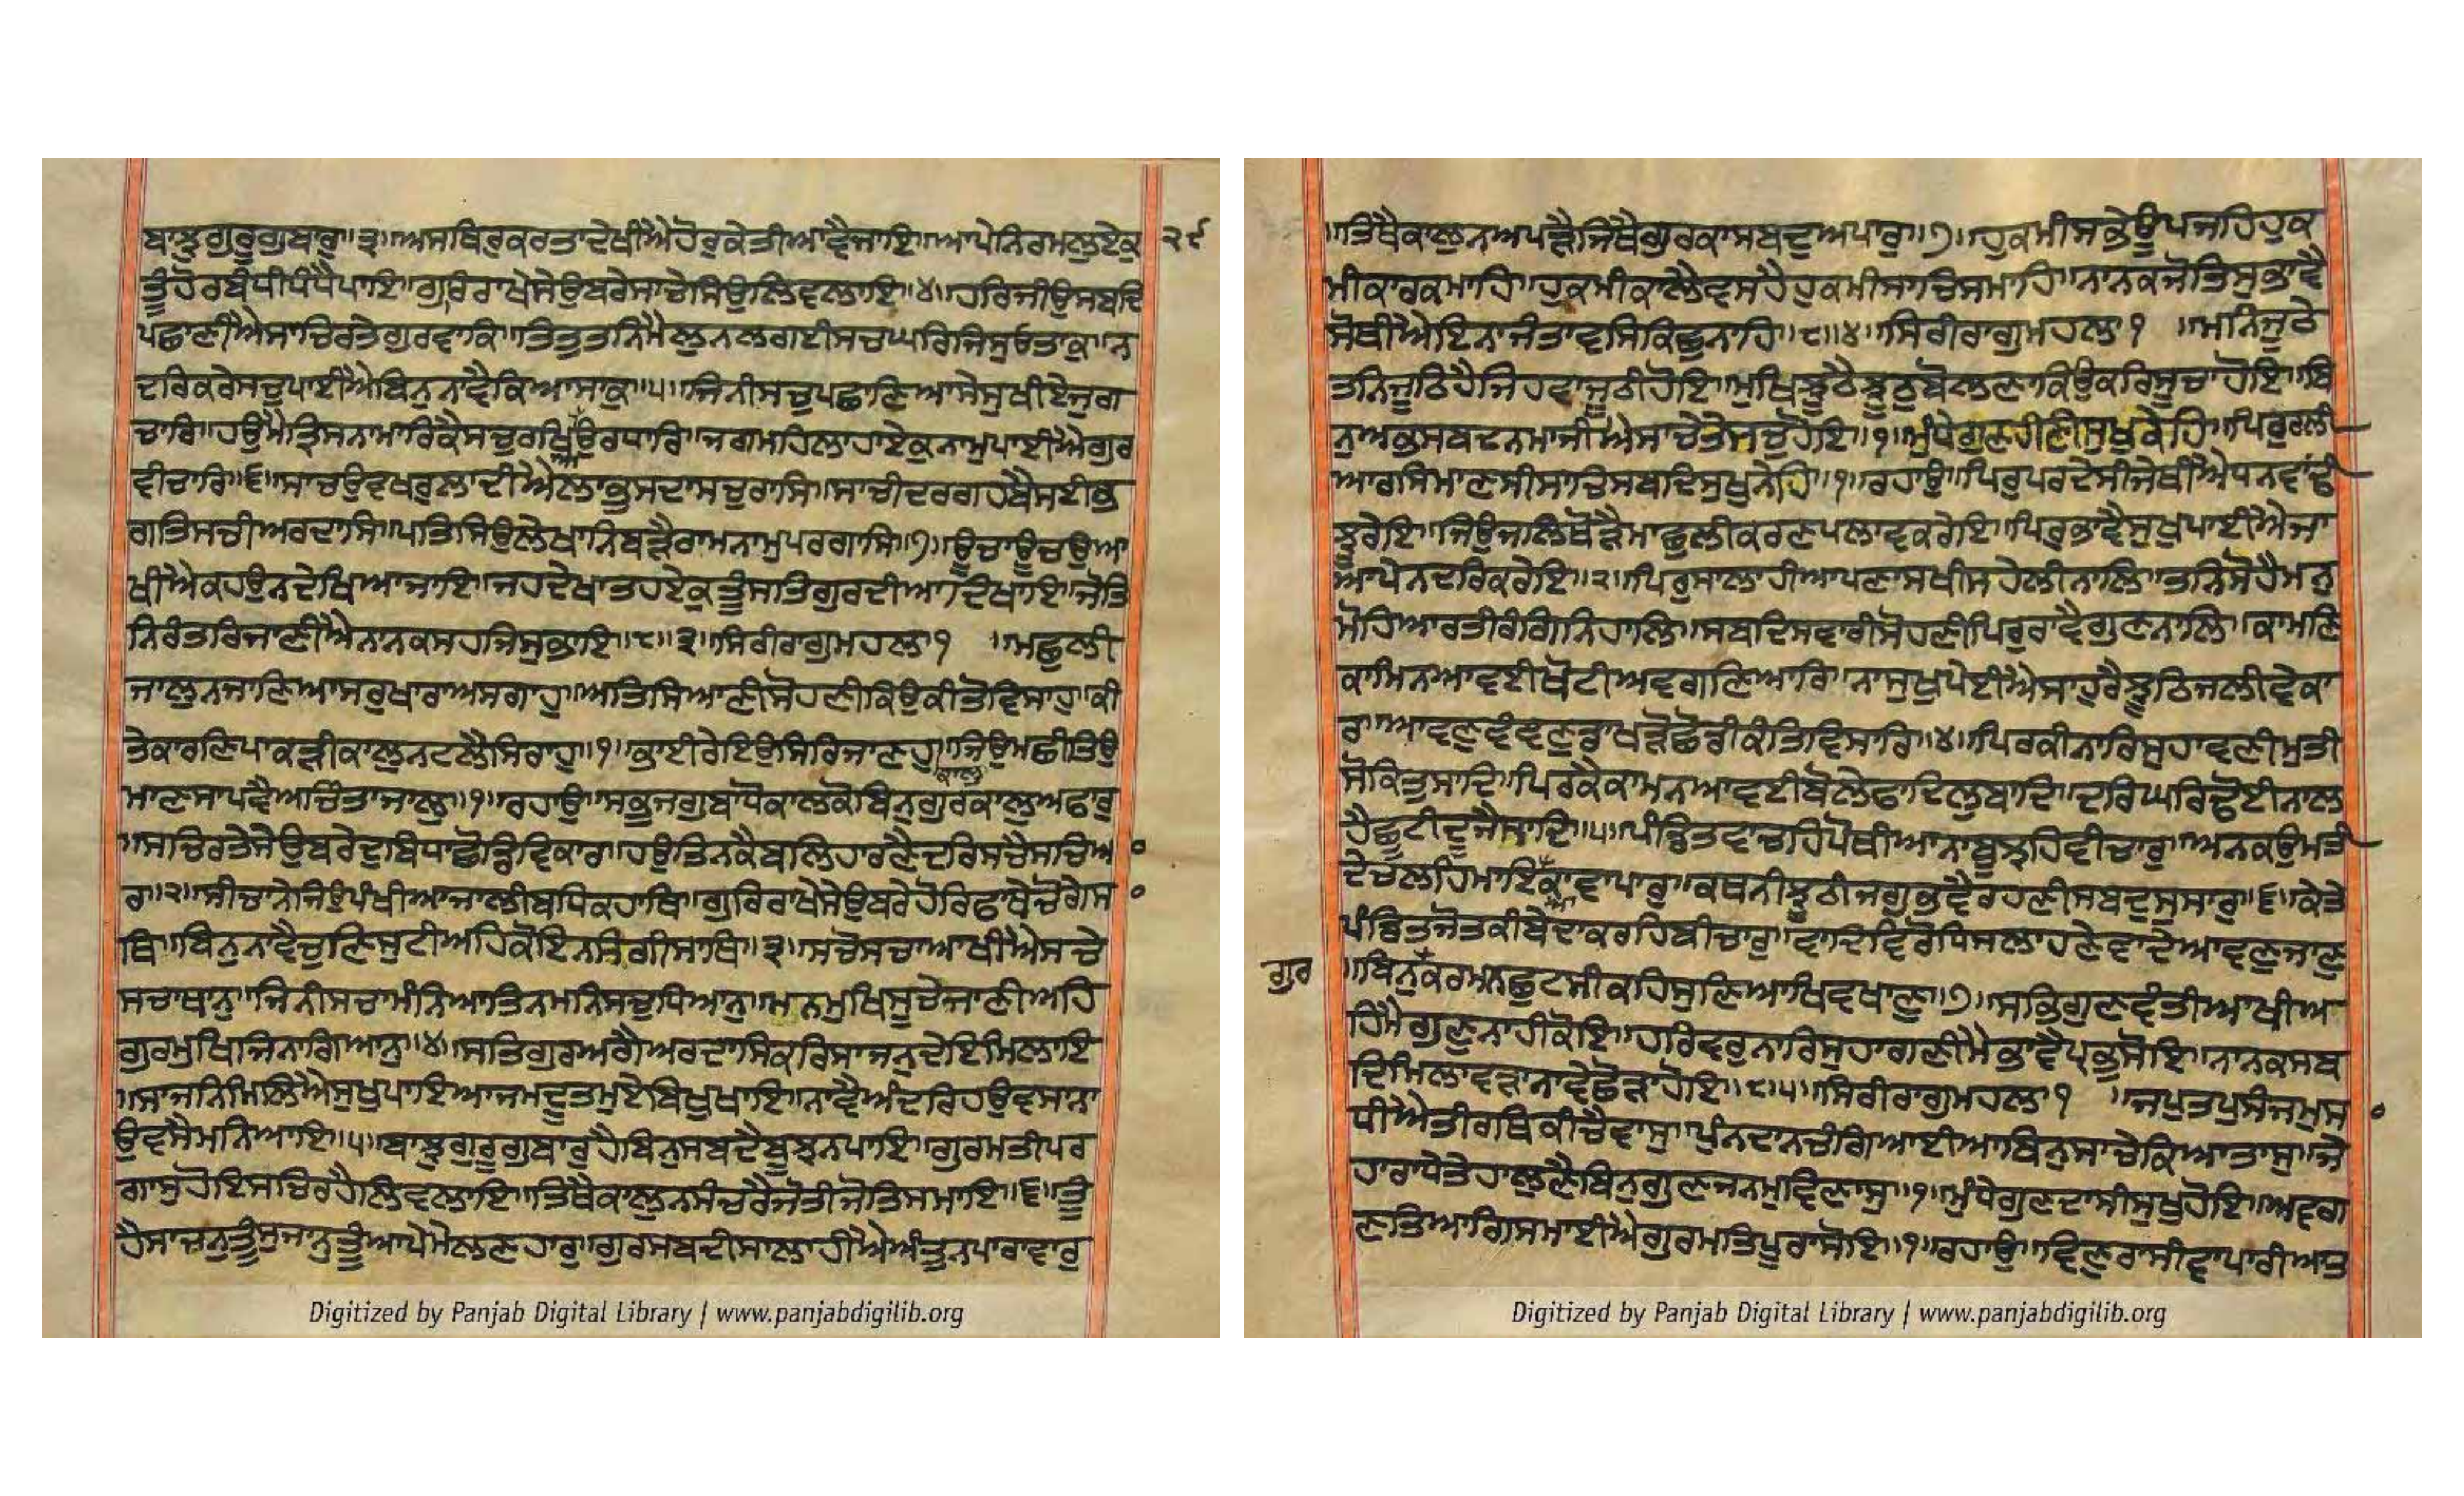 ਬਾਝੁਗੁਰੂਗੁਬਾਰੁ॥੩॥ਅਸਥਿਰੁਕਰਤਾਦੇਖੀਐਹੋਰੁਕੇਤੀਆਵੈਜਾਇ॥ਆਪੇਨਿਰਮਲੁਏਕੁ ੨੯
ਤੂੰਹੋਰਬੰਧੀਧੰਧੈਪਾਇ॥ਗੁਰਿਰਾਖੇਸੇਉਬਰੇਸਾਚੇਸਿਉਲਿਵਲਾਇ॥੪॥ਹਰਿਜੀਉਸਬਦਿ
ਪਛਾਣੀਐਸਾਚਿਰਤੇਗੁਰਵਾਕਿ॥ਤਿਤੁਤਨਿਮੈਲੁਨਲਗਈਸਚਘਰਿਜਿਸੁਓਤਾਕੁ॥ਨ
ਦਰਿਕਰੇਸਚੁਪਾਈਐਬਿਨੁਨਾਵੈਕਿਆਸਾਕੁ॥੫॥ਜਿਨੀਸਚੁਪਛਾਣਿਆਸੇਸੁਖੀਏਜੁਗ
ਚਾਰਿ॥ਹਉਮੈਤ੍ਰਿਸਨਾਮਾਰਿਕੈਸਚੁਰਖਿਉਰਧਾਰਿ॥ਜਗਮਹਿਲਾਹਾਏਕੁਨਾਮੁਪਾਈਐਗੁਰ
ਵੀਚਾਰਿ॥੬॥ਸਾਚਉਵਖਰੁਲਾਦੀਐਲਾਭੁਸਦਾਸਚੁਰਾਸਿ॥ਸਾਚੀਦਰਗਹਬੈਸਈਭ
ਗਤਿਸਚੀਅਰਦਾਸਿ॥ਪਤਿਸਿਉਲੇਖਾਨਿਬੜੈਰਾਮਨਾਮੁਪਰਗਾਸਿ॥੭॥ਊਚਾਊਚਉਆ
ਖੀਐਕਹਉਨਦੇਖਿਆਜਾਇ॥ਜਹਦੇਖਾਤਹਏਕੁਤੂੰਸਤਿਗੁਰਦੀਆਦਿਖਾਇ॥ਜੋਤਿ
ਨਿਰੰਤਰਿਜਾਣੀਐਨਾਨਕਸਹਜਿਸੁਭਾਇ॥੮॥੩॥ਸਿਰੀਰਾਗੁਮਹਲਾ੧ ॥ਮਛੁਲੀ
ਜਾਲੁਨਜਾਣਿਆਸਰੁਖਾਰਾਅਸਗਾਹੁ॥ਅਤਿਸਿਆਣੀਸੋਹਣੀਕਿਉਕੀਤੋਵਿਸਾਹੁ॥ਕੀ
ਤੇਕਾਰਣਿਪਾਕੜੀਕਾਲੁਨਟਲੈਸਿਰਾਹੁ॥੧॥ਭਾਈਰੇਇਉਸਿਰਿਜਾਣਹੁ ਕਾਲੁ ॥ਜਿਉਮਛੀਤਿਉ
ਮਾਣਸਾਪਵੈਅਚਿੰਤਾਜਾਲੁ॥੧॥ਰਹਾਉ॥ਸਭੁਜਗੁਬਾਧੋਕਾਲਕੋਬਿਨੁਗੁਰਕਾਲੁਅਫਾਰੁ
॥ਸਚਿਰਤੇਸੇਉਬਰੇਦੁਬਿਧਾਛੋਡਿਵਿਕਾਰ॥ਹਉਤਿਨਕੈਬਲਿਹਾਰਣੈਦਰਿਸਚੈਸਚਿਆ
ਰ॥੨॥ਸੀਚਾਨੇਜਿਉਪੰਖੀਆਜਾਲੀਬਧਿਕਹਾਥਿ॥ਗੁਰਿਰਾਖੇਸੇਉਬਰੇਹੋਰਿਫਾਥੇਚੋਗੈਸਾ
ਥਿ॥ਬਿਨੁਨਾਵੈਚੁਣਿਸੁਟੀਅਹਿਕੋਇਨਸੰਗੀਸਾਥਿ॥੩॥ਸਚੋਸਚਾਆਖੀਐਸਚੇ
ਸਚਾਥਾਨੁ॥ਜਿਨੀਸਚਾਮੰਨਿਆਤਿਨਮਨਿਸਚੁਧਿਆਨੁ॥ਮਨਮੁਖਿਸੂਚੇਜਾਣੀਅਹਿ
ਗੁਰਮੁਖਿਜਿਨਾਗਿਆਨੁ॥੪॥ਸਤਿਗੁਰਅਗੈਅਰਦਾਸਿਕਰਿਸਾਜਨੁਦੇਇਮਿਲਾਇ
॥ਸਾਜਨਿਮਿਲਿਐਸੁਖੁਪਾਇਆਜਮਦੂਤਮੁਏਬਿਖੁਖਾਇ॥ਨਾਵੈਅੰਦਰਿਹਉਵਸਾਨਾ
ਉਵਸੈਮਨਿਆਇ॥੫॥ਬਾਝੁਗੁਰੂਗੁਬਾਰੁਹੈਬਿਨੁਸਬਦੈਬੂਝਨਪਾਇ॥ਗੁਰਮਤੀਪਰ
ਗਾਸੁਹੋਇਸਚਿਰਹੈਲਿਵਲਾਇ॥ਤਿਥੈਕਾਲੁਨਸੰਚਰੈਜੋਤੀਜੋਤਿਸਮਾਇ॥੬॥ਤੂੰ
ਹੈਸਾਜਨੁਤੂੰਸੁਜਾਨੁਤੂੰਆਪੇਮੇਲਣਹਾਰੁ॥ਗੁਰਸਬਦੀਸਾਲਾਹੀਐਅੰਤੁਨਪਾਰਾਵਾਰੁ
॥ਤਿਥੈਕਾਲੁਨਅਪੜੈਜਿਥੈਗੁਰਕਾਸਬਦੁਅਪਾਰੁ॥੭॥ਹੁਕਮੀਸਭੇਊਪਜਹਿਹੁਕ
ਮੀਕਾਰਕਮਾਹਿ॥ਹੁਕਮੀਕਾਲੈਵਸਹੈਹੁਕਮੀਸਾਚਿਸਮਾਹਿ॥ਨਾਨਕਜੋਤਿਸੁਭਾਵੈ
ਸੋਥੀਐਇਨਾਜੰਤਾਵਸਿਕਿਛੁਨਾਹਿ॥੮॥੪॥ਸਿਰੀਰਾਗੁਮਹਲਾ੧ ॥ਮਨਿਜੂਠੈ
ਤਨਿਜੂਠਿਹੈਜਿਹਵਾਜੂਠੀਹੋਇ॥ਮੁਖਿਝੂਠੈਝੂਠੁਬੋਲਣਾਕਿਉਕਰਿਸੂਚਾਹੋਇ॥ਬਿ
ਨੁਅਭਸਬਦਨਮਾਂਜੀਐਸਾਚੇਤੇਸਚੁਹੋਇ॥੧॥ਮੁੰਧੇਗੁਣਹੀਣੀਸੁਖੁਕੇਹਿ॥ਪਿਰੁਰਲੀ
ਆਰਸਿਮਾਣਸੀਸਾਚਿਸਬਦਿਸੁਖੁਨੇਹਿ॥੧॥ਰਹਾਉ॥ਪਿਰੁਪਰਦੇਸੀਜੇਥੀਐਧਨਵਾਂਢੀ
ਝੂਰੇਇ॥ਜਿਉਜਲਿਥੋੜੈਮਾਛੁਲੀਕਰਣਪਲਾਵਕਰੇਇ॥ਪਿਰਭਾਵੈਸੁਖੁਪਾਈਐਜਾ
ਆਪੇਨਦਰਿਕਰੇਇ॥੨॥ਪਿਰੁਸਾਲਾਹੀਆਪਣਾਸਖੀਸਹੇਲੀਨਾਲਿ॥ਤਨਿਸੋਹੈਮਨੁ
ਮੋਹਿਆਰਤੀਰੰਗਿਨਿਹਾਲਿ॥ਸਬਦਿਸਵਾਰੀਸੋਹਣੀਪਿਰੁਰਾਵੈਗੁਣਨਾਲਿ॥ਕਾਮਣਿ
ਕਾਮਿਨਆਵਈਖੋਟੀਅਵਗਣਿਆਰਿ॥ਨਾਸੁਖੁਪੇਈਐਸਾਹੁਰੈਝੂਠਿਜਲੀਵੇਕਾ
ਰਾ॥ਆਵਣੁਵੰਞਣੁਡਾਖੜੋਛੋਡੀਕੰਤਿਵਿਸਾਰਿ॥੪॥ਪਿਰਕੀਨਾਰਿਸੁਹਾਵਣੀਮੁਤੀ
ਸੋਕਿਤੁਸਾਦਿ॥ਪਿਰਕੈਕਾਮਨਆਵਈਬੋਲੇਫਾਦਿਲੁਬਾਦਿ॥ਦਰਿਘਰਿਢੋਈਨਾਲ
ਹੈਛੂਟੀਦੂਜੈਸਾਦਿ॥੫॥ਪੰਡਿਤਵਾਚਹਿਪੋਥੀਆਨਾਬੂਝਹਿਵੀਚਾਰੁ॥ਅਨਕਉਮਤੀ
ਦੇਚਲਹਿਮਾਇਕਾਵਾਪਾਰੁ॥ਕਥਨੀਝੂਠੀਜਗੁਭਵੈਰਹਣੀਸਬਦੁਸੁਸਾਰੁ॥੬॥ਕੇਤੇ
ਪੰਡਿਤਜੋਤਕੀਬੇਦਾਕਰਹਿਬੀਚਾਰੁ॥ਵਾਦਿਵਿਰੋਧਿਸਲਾਹਣੇਵਾਦੇਆਵਣੁਜਾਣੁ
ਗੁਰ ॥ਬਿਨੁਕਰਮਨਛੁਟਸੀਕਹਿਸੁਣਿਆਖਿਵਖਾਣੁ॥੭॥ਸਭਿਗੁਣਵੰਤੀਆਖੀਅ
ਹਿਮੈਗੁਣੁਨਾਹੀਕੋਇ॥ਹਰਿਵਰੁਨਾਰਿਸੁਹਾਵਣੀਮੈਭਾਵੈਪ੍ਰਭੁਸੋਇ॥ਨਾਨਕਸਬ
ਦਿਮਿਲਾਵੜਾਨਾਵੇਛੋੜਾਹੋਇ॥੮॥੫॥ਸਿਰੀਰਾਗੁਮਹਲਾ੧ ॥ਜਪੁਤਪੁਸੰਜਮੁਸਾ
ਧੀਐਤੀਰਥਿਕੀਚੈਵਾਸੁ॥ਪੁੰਨਦਾਨਚੰਗਿਆਈਆਬਿਨੁਸਾਚੇਕਿਆਤਾਸੁ॥ਜੇ
ਹਾਰਾਧੇਤੇਹਾਲੁਣੈਬਿਨੁਗੁਣਜਨਮੁਵਿਣਾਸੁ॥੧॥ਮੁੰਧੇਗੁਣਦਾਸੀਸੁਖੁਹੋਇ॥ਅਵਗ
ਣਤਿਆਗਿਸਮਾਈਐਗੁਰਮਤਿਪੂਰਾਸੋਇ॥੧॥ਰਹਾਉ॥ਵਿਣੁਰਾਸੀਵਾਪਾਰੀਆਤ
Digitized by Panjab Digital Library | www.panjabdigilib.org
Digitized by Panjab Digital Library | www.panjabdigilib.org